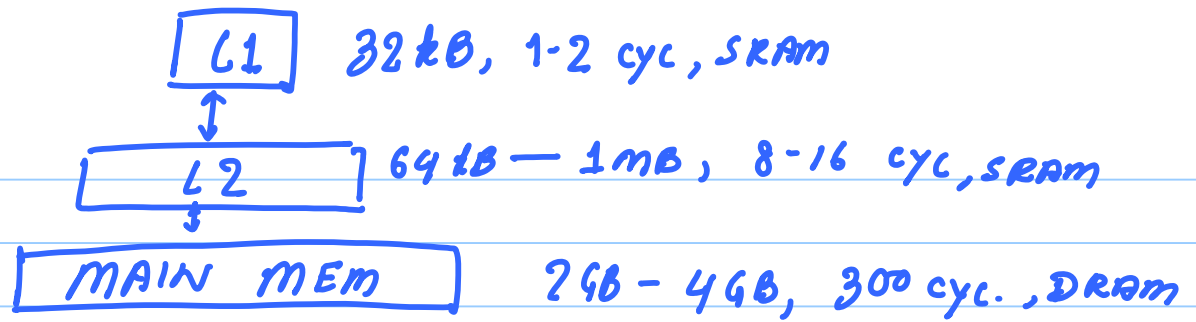 L1 32 kB, 1-2 cyc, SRAM
L2 64 kB — 1 MB, 8-16 cyc, SRAM
MAIN MEM 2 GB - 4 GB, 300 cyc., DRAM